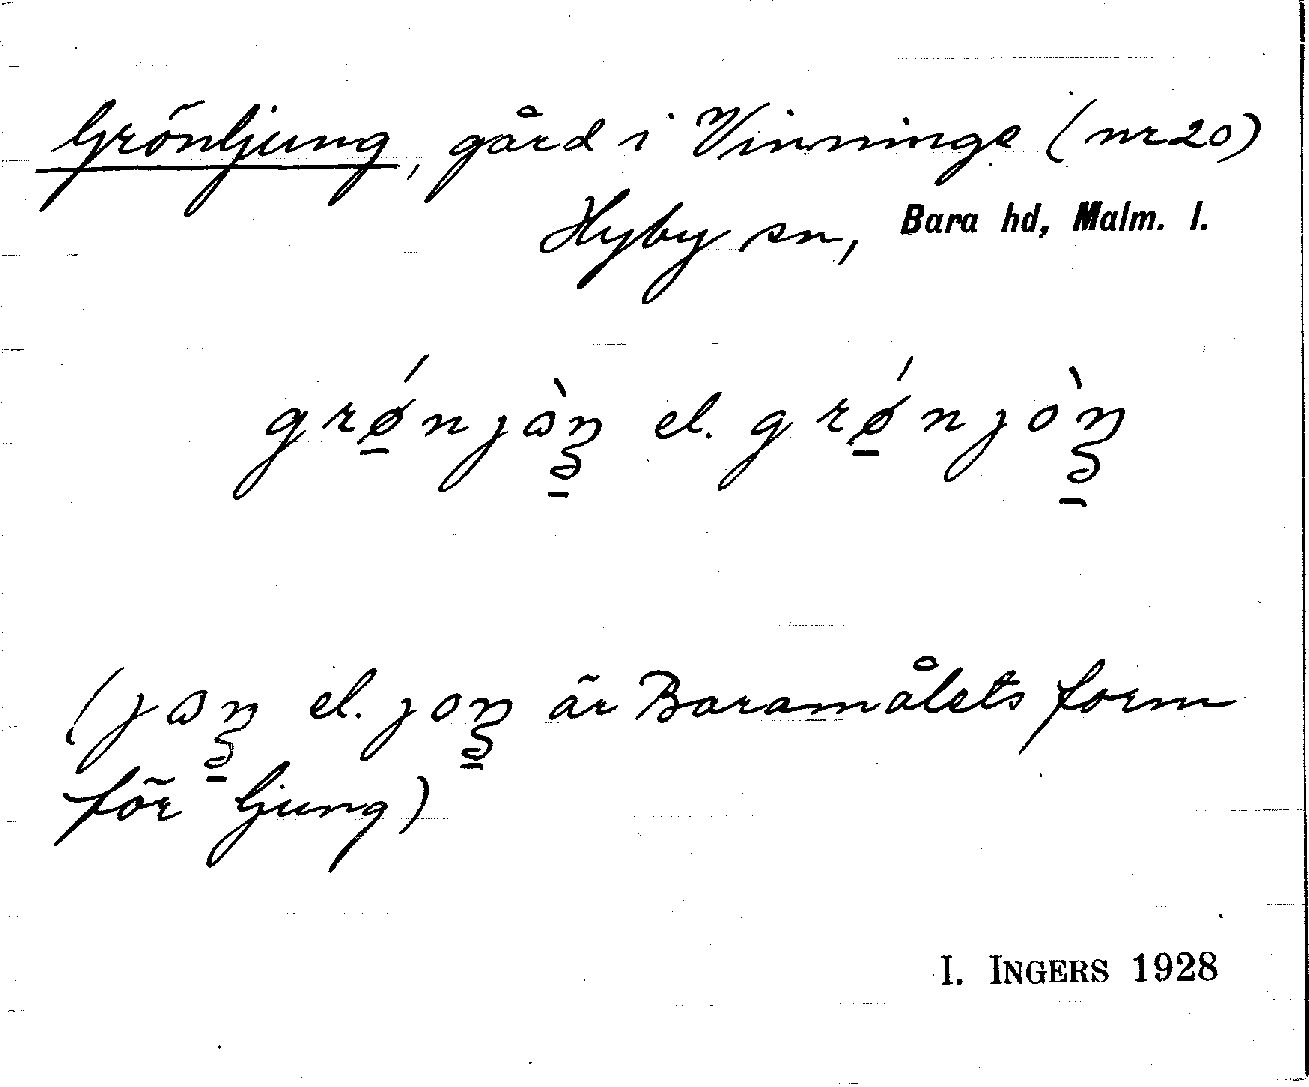 Grönljung, gård i Vinninge (nr 20)
Hyby sn, Bara hd, Malm. l.
grǿ̱njɷ̀ŋ̱ el. grǿ̱njòŋ̱
(jɷŋ̱ el. joŋ̱ är Baramålets form
för ljung)
I. INGERS 1928